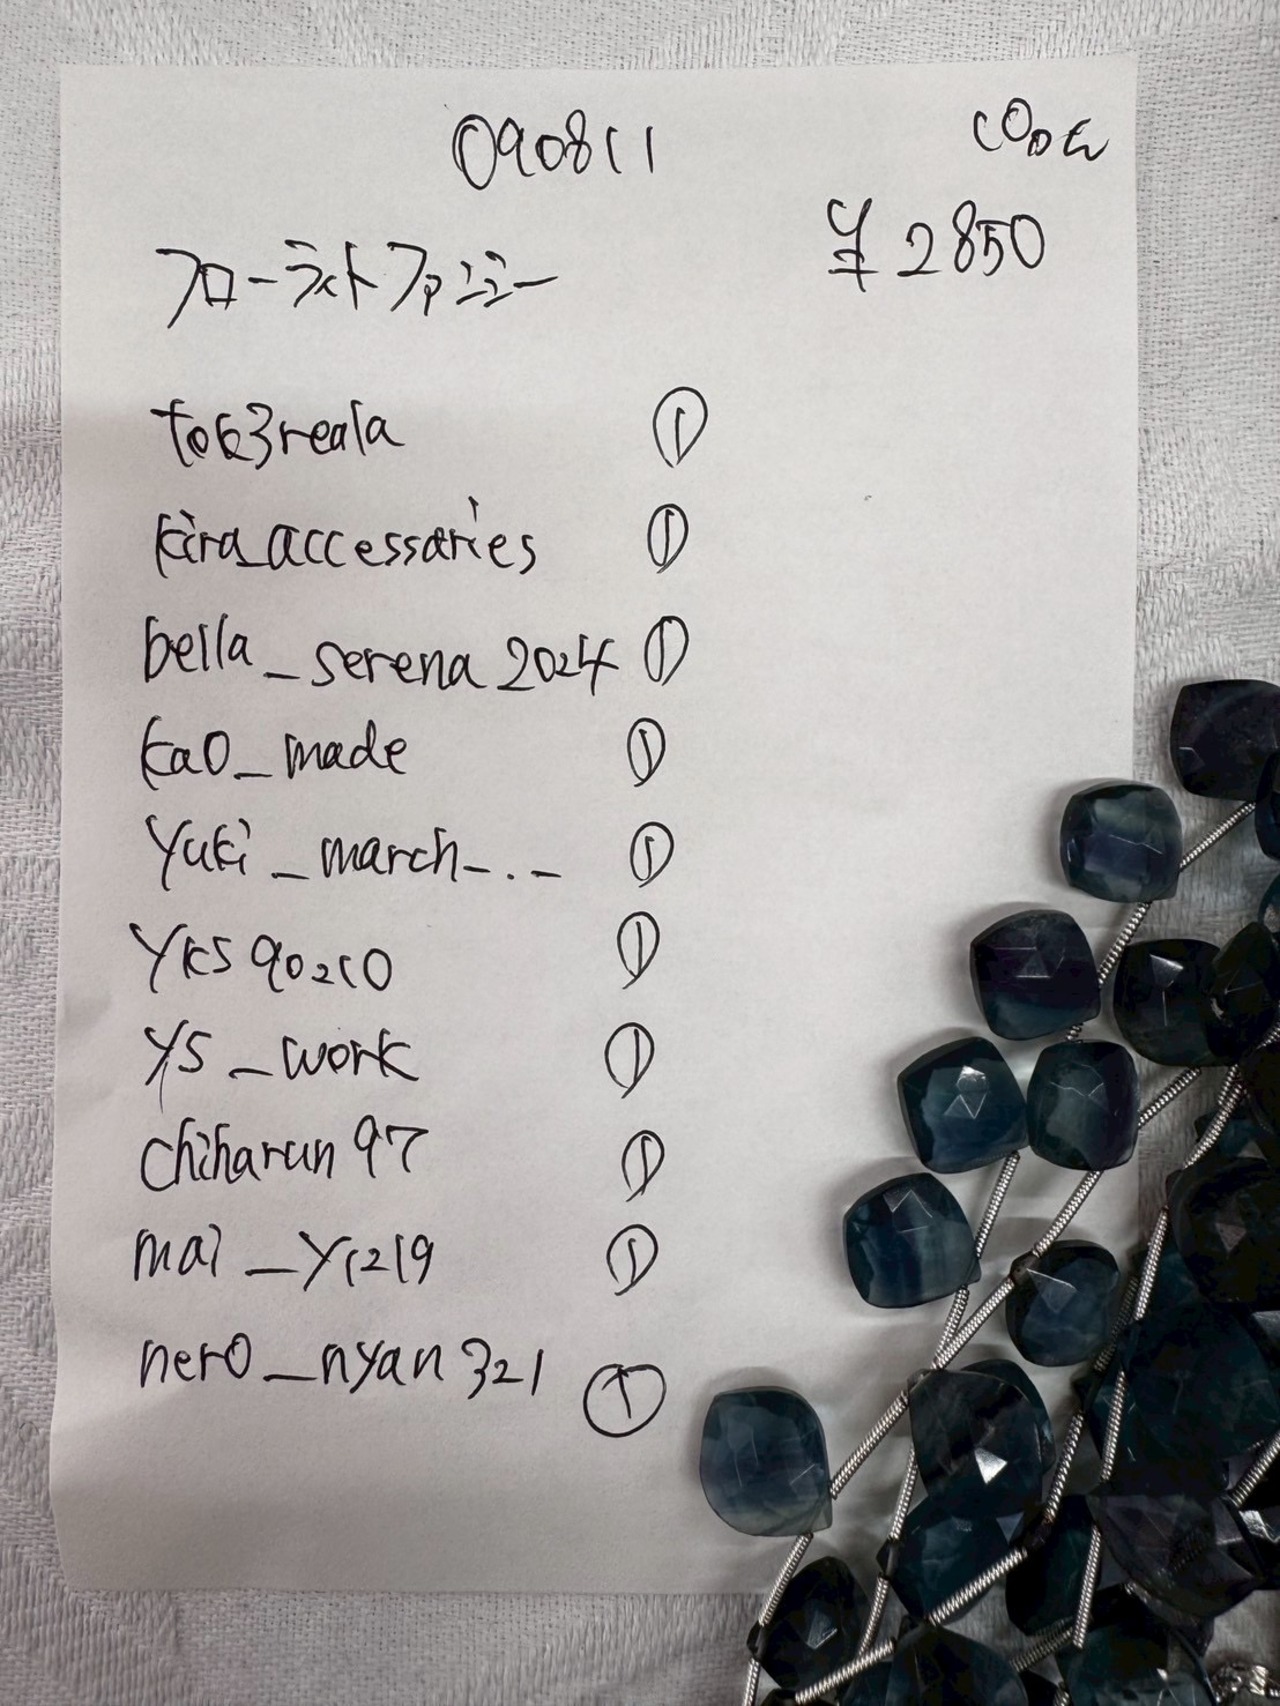 090811
¥2850
フローライトファンシー
tok3reala ①
kira_accessaries ①
bella_serena2024 ①
kao_made ①
yuki_march_._ ①
yks90210 ①
ys_work ①
chiharun97 ①
mai_y1219 ①
nero_nyan321 ①